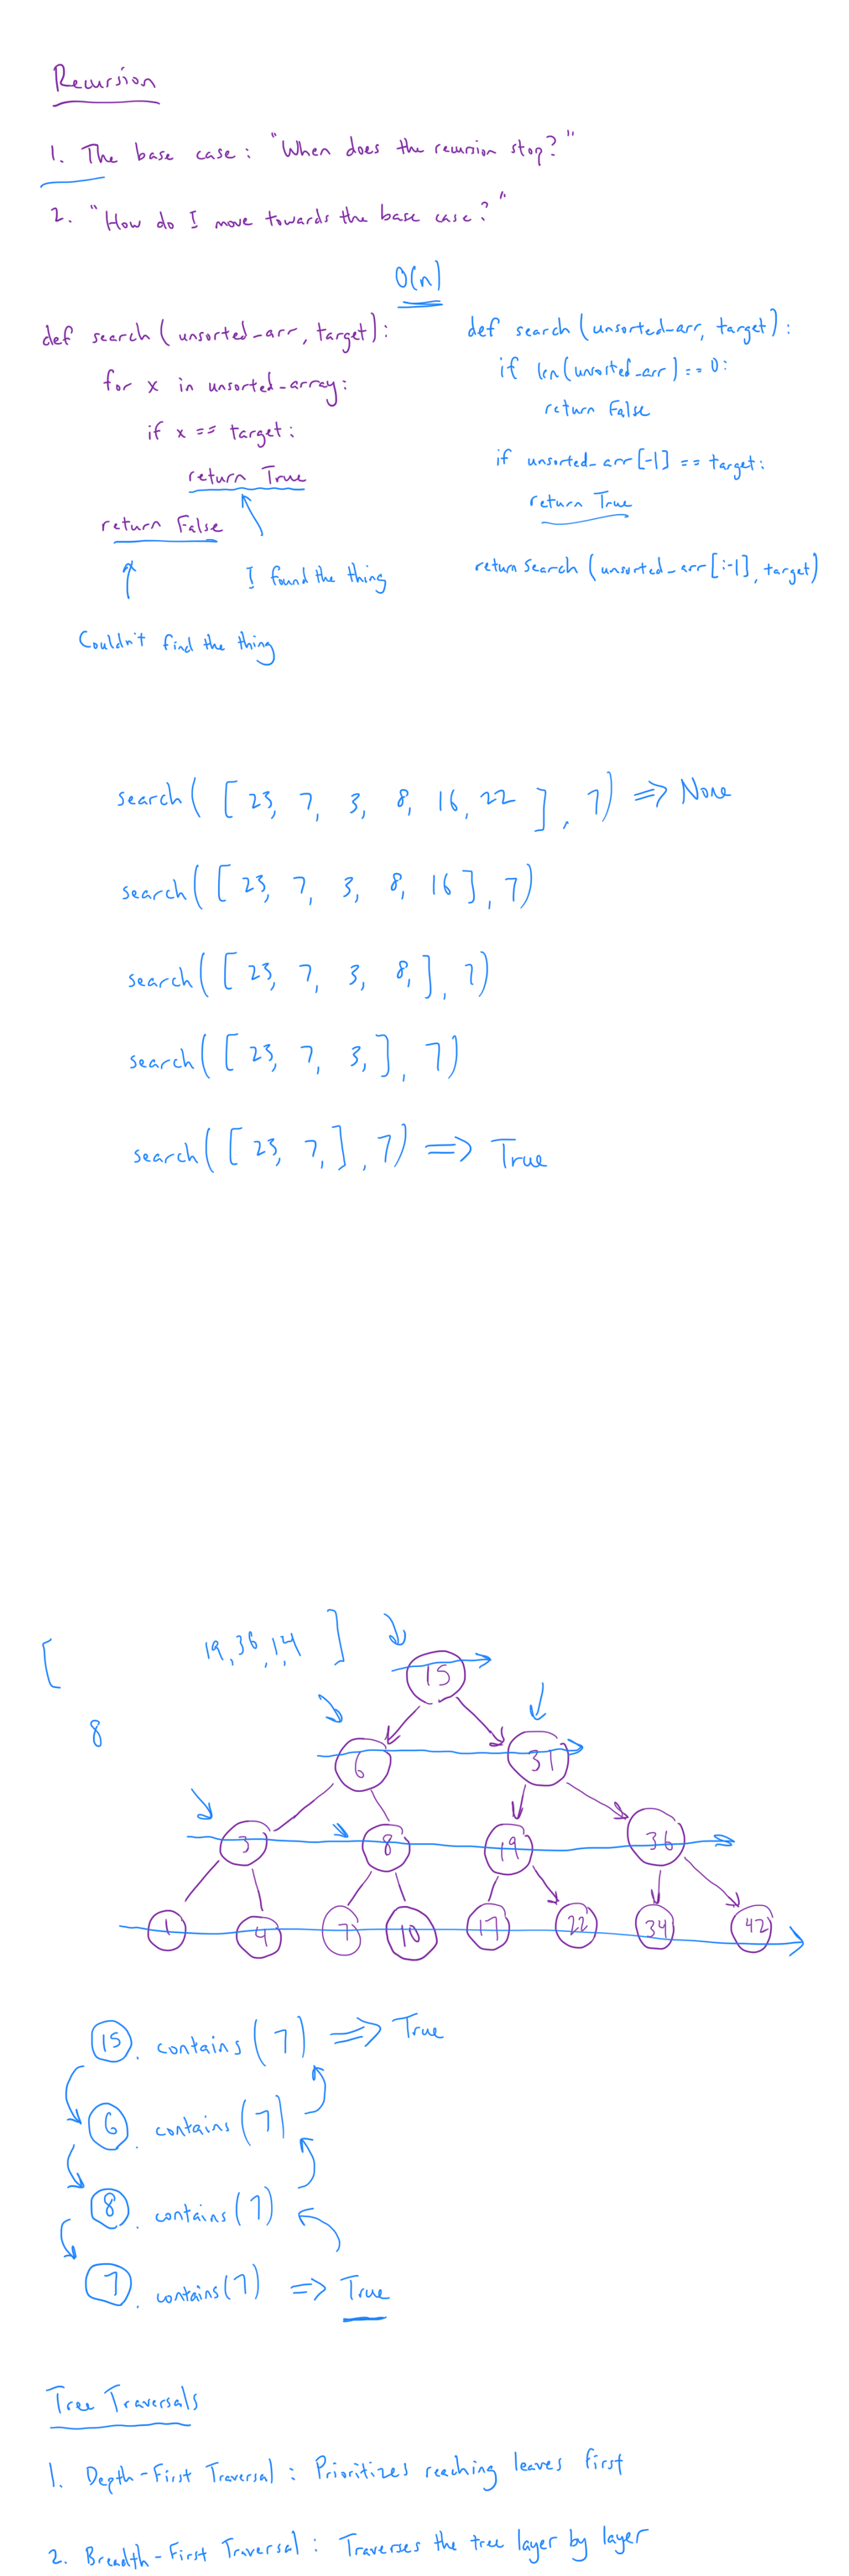 Recursion
1. The base case: "When does the recursion stop?"
2. "How do I move towards the base case?"
O(n)
def search(unsorted_arr, target):
for x in unsorted_array:
if x == target:
return True
return False
I found the thing
Couldn't find the thing
def search(unsorted_arr, target):
if len(unsorted_arr) == 0:
return False
if unsorted_arr[-1] == target:
return True
return search(unsorted_arr[:-1], target)
search([23, 7, 3, 8, 16, 22], 7) => None
search([23, 7, 3, 8, 16], 7)
search([23, 7, 3, 8,], 7)
search([23, 7, 3,], 7)
search([23, 7,], 7) => True
[ 19, 36, 1, 4 ]
8
15
6 31
3 8 19 36
1 4 7 10 17 22 34 42
15. contains(7) => True
6. contains(7)
8. contains(7)
7. contains(7) => True
Tree Traversals
1. Depth-First Traversal: Prioritizes reaching leaves first
2. Breadth-First Traversal: Traverses the tree layer by layer